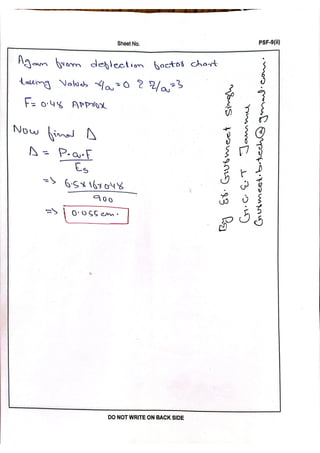 Sheet No.
PSF-9(ii)
Again from deflection factor chart
taking Values r/a = 0 & Z/a = 3
F = 0.48 Approx
Now final Δ
Δ = P.a.F
Es
=> 6.5 x 16 x 0.48
900
=> 0.055 cm.
By Er. Gurmeet Singh
G.C.E.T Jammu
Gurmeet.b.tech@gmail.com.
DO NOT WRITE ON BACK SIDE